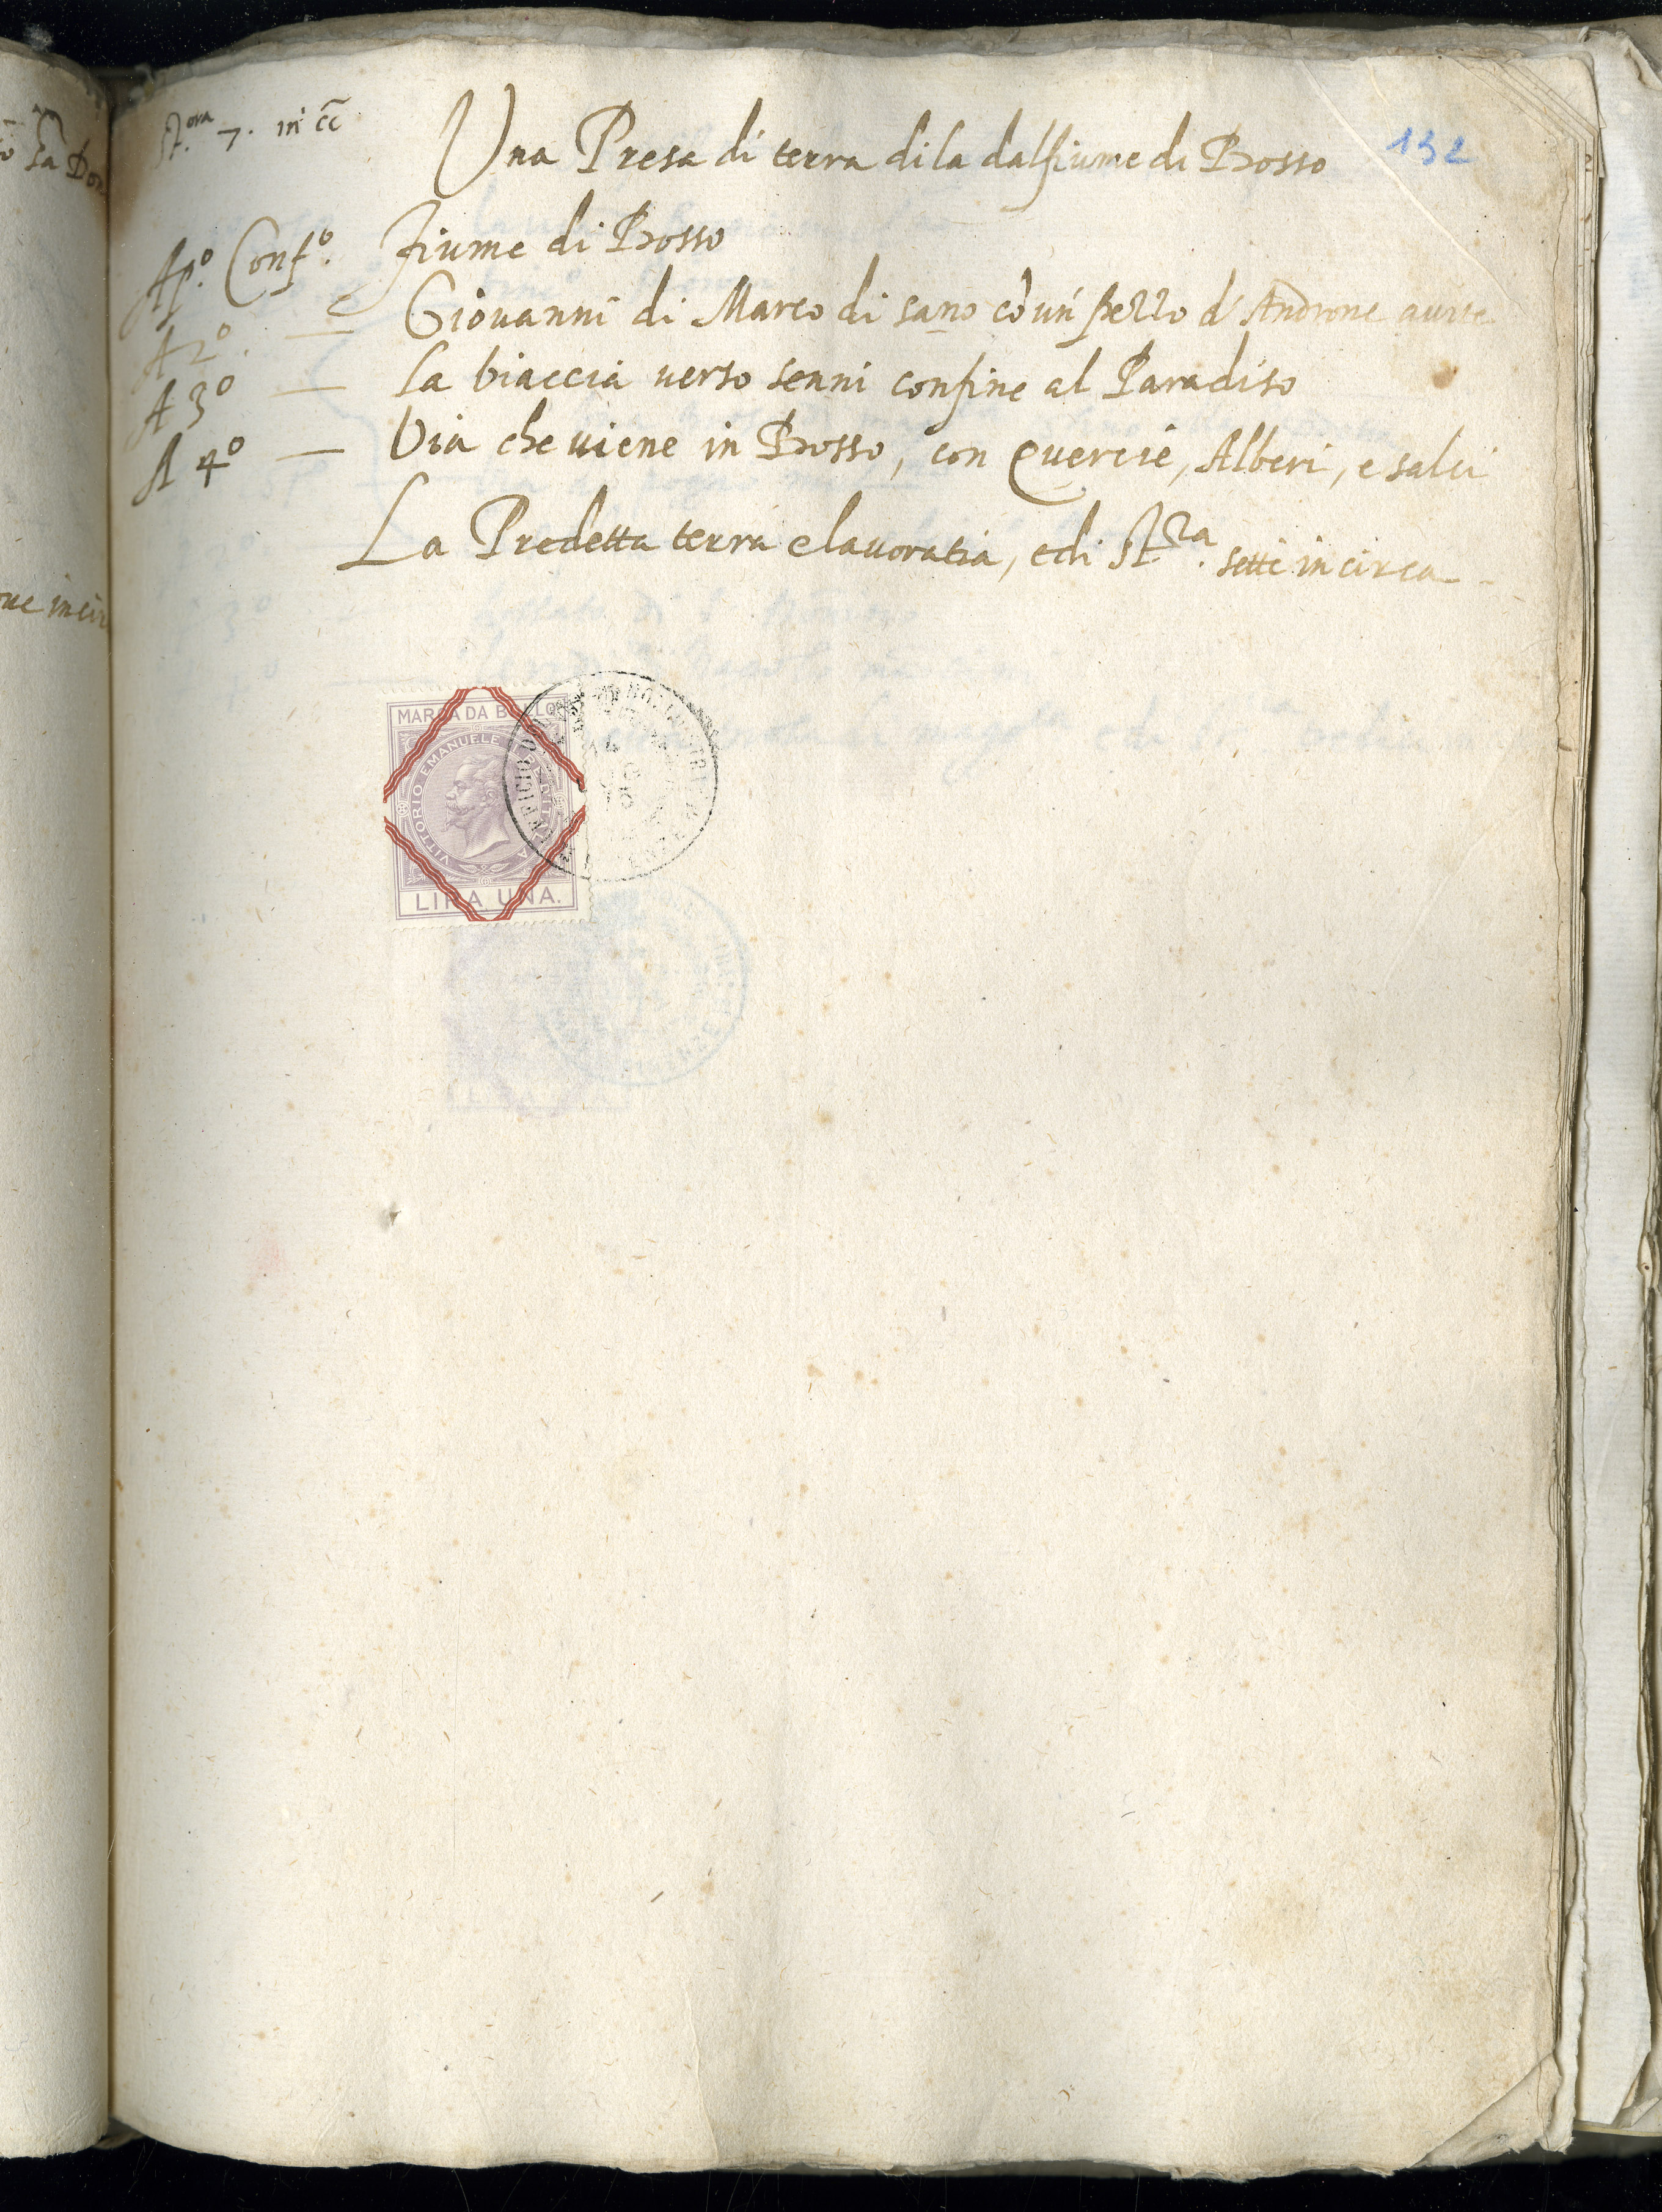 St.ora 7. in cc
Una Presa di terra di la dal fiume di Bosso 132
Ap.o Conf.o Fiume di Bosso
A 2o. — Giovanni di Marco di sano cō un pezzo d'Androne
A 3o — la biaccia verso senni confine al Paradiso
A 4o — Via che viene in Bosso, con Quercie, Alberi, e salci
La Predetta terra e lavoratia, e di st.ra sette in circa
MARCA DA BOLLO
VITTORIO EMANUELE II RE D'ITALIA
LIRA UNA.